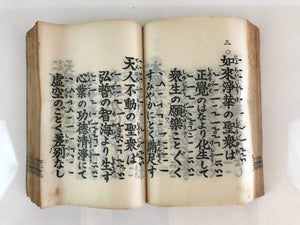 三〇
如來淨華の聖衆は
正覺のはなより化生して
衆生の願樂ことごとく
すみやかに滿足す
天人不動の聖衆は
弘誓の智海より生ず
心業の功德清淨にて
虛空のごとく差別なし